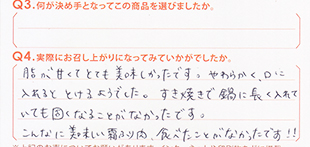 Q3.何が決め手となってこの商品を選びましたか。
Q4.実際にお召し上がりになってみていかがでしたか。
脂が甘くてとても美味しかったです。やわらかく、口に
入れると とけるようでした。すき焼きで鍋に長く入れて
いても固くなることがなかったです。
こんなに美味しい霜ふり肉、食べたことがなかったです!!